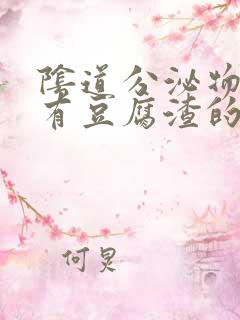 陰道分泌物
有豆腐渣的
何炅